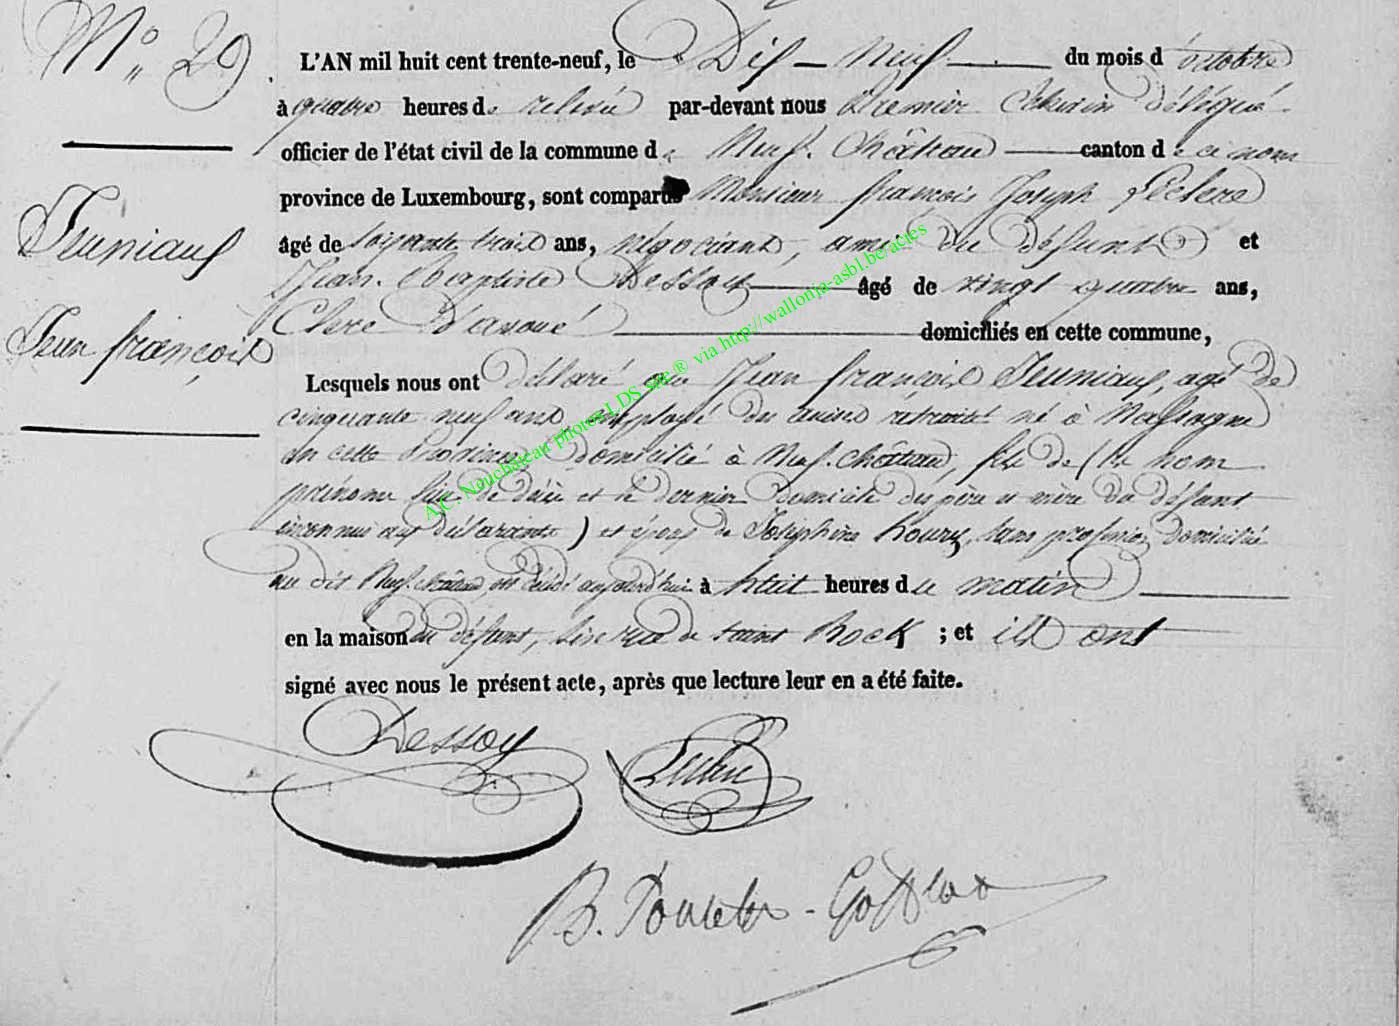 N° 29
Jeuniaux
Jean françois
L'AN mil huit cent trente-neuf, le Dix-neuf du mois d'octobre
à quatre heures de relevée par-devant nous Premier Echevin délégué
officier de l'état civil de la commune de Neuf-Château canton de ce nom
province de Luxembourg, sont comparus Monsieur françois Joseph Leclerc
âgé de soixante trois ans, négociant, ami du défunt et
Jean-Baptiste Dessoy âgé de vingt quatre ans,
Clerc d'avoué domiciliés en cette commune,
Lesquels nous ont déclaré que Jean françois Jeuniaux, agé de
cinquante neuf ans, employé du retraité né à Massogne
en cette Province, domicilié à Neuf-Château, fils de (les nom
prénoms lieu de décès et le dernier domicile des père et mère du défunt
inconnus aux déclarants) et époux de Joséphine Houry, sans profession, domiciliée
au dit Neufchâteau, est décédé aujourd'hui à huit heures du matin
en la maison du défunt, sise rue de saint Rock ; et ils ont
signé avec nous le présent acte, après que lecture leur en a été faite.
A.C. Neuchâteau photos LDS sur ® via http://wallonia-asbl.be/actes
Dessoy Leclerc
B. Poncelet-